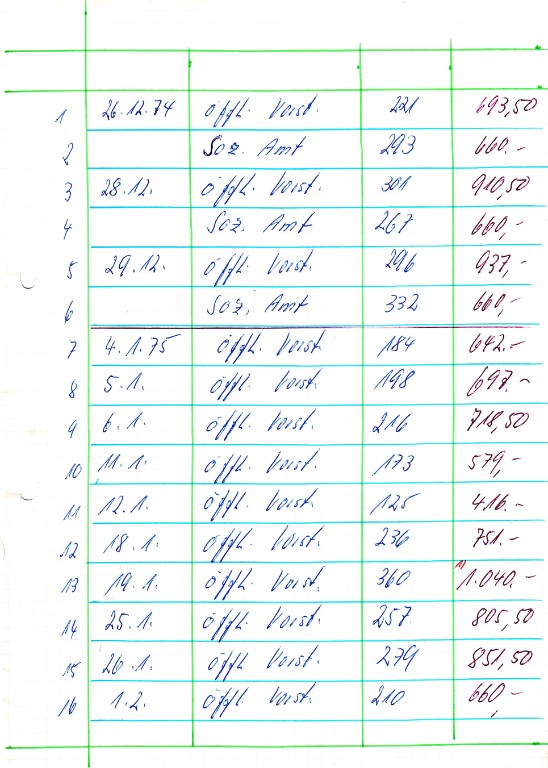 1 26.12.74 Öffl. Vorst. 221 693,50
2 Soz. Amt 293 660.-
3 28.12. Öffl. Vorst. 301 910,50
4 Soz. Amt 267 660,-
5 29.12. Öffl. Vorst. 296 937,-
6 Soz. Amt 332 660,-
7 4.1.75 Öffl. Vorst 184 642.-
8 5.1. Öffl. Vorst. 198 697.-
9 6.1. Öffl. Vorst. 216 718,50
10 11.1. Öffl. Vorst. 173 579,-
11 12.1. Öffl. Vorst. 125 416.-
12 18.1. Öffl. Vorst. 236 751.-
13 19.1. Öffl. Vorst. 360 1) 1.040.-
14 25.1. Öffl. Vorst. 257 805,50
15 26.1. Öffl. Vorst. 279 851,50
16 1.2. Öffl. Vorst. 210 660,-